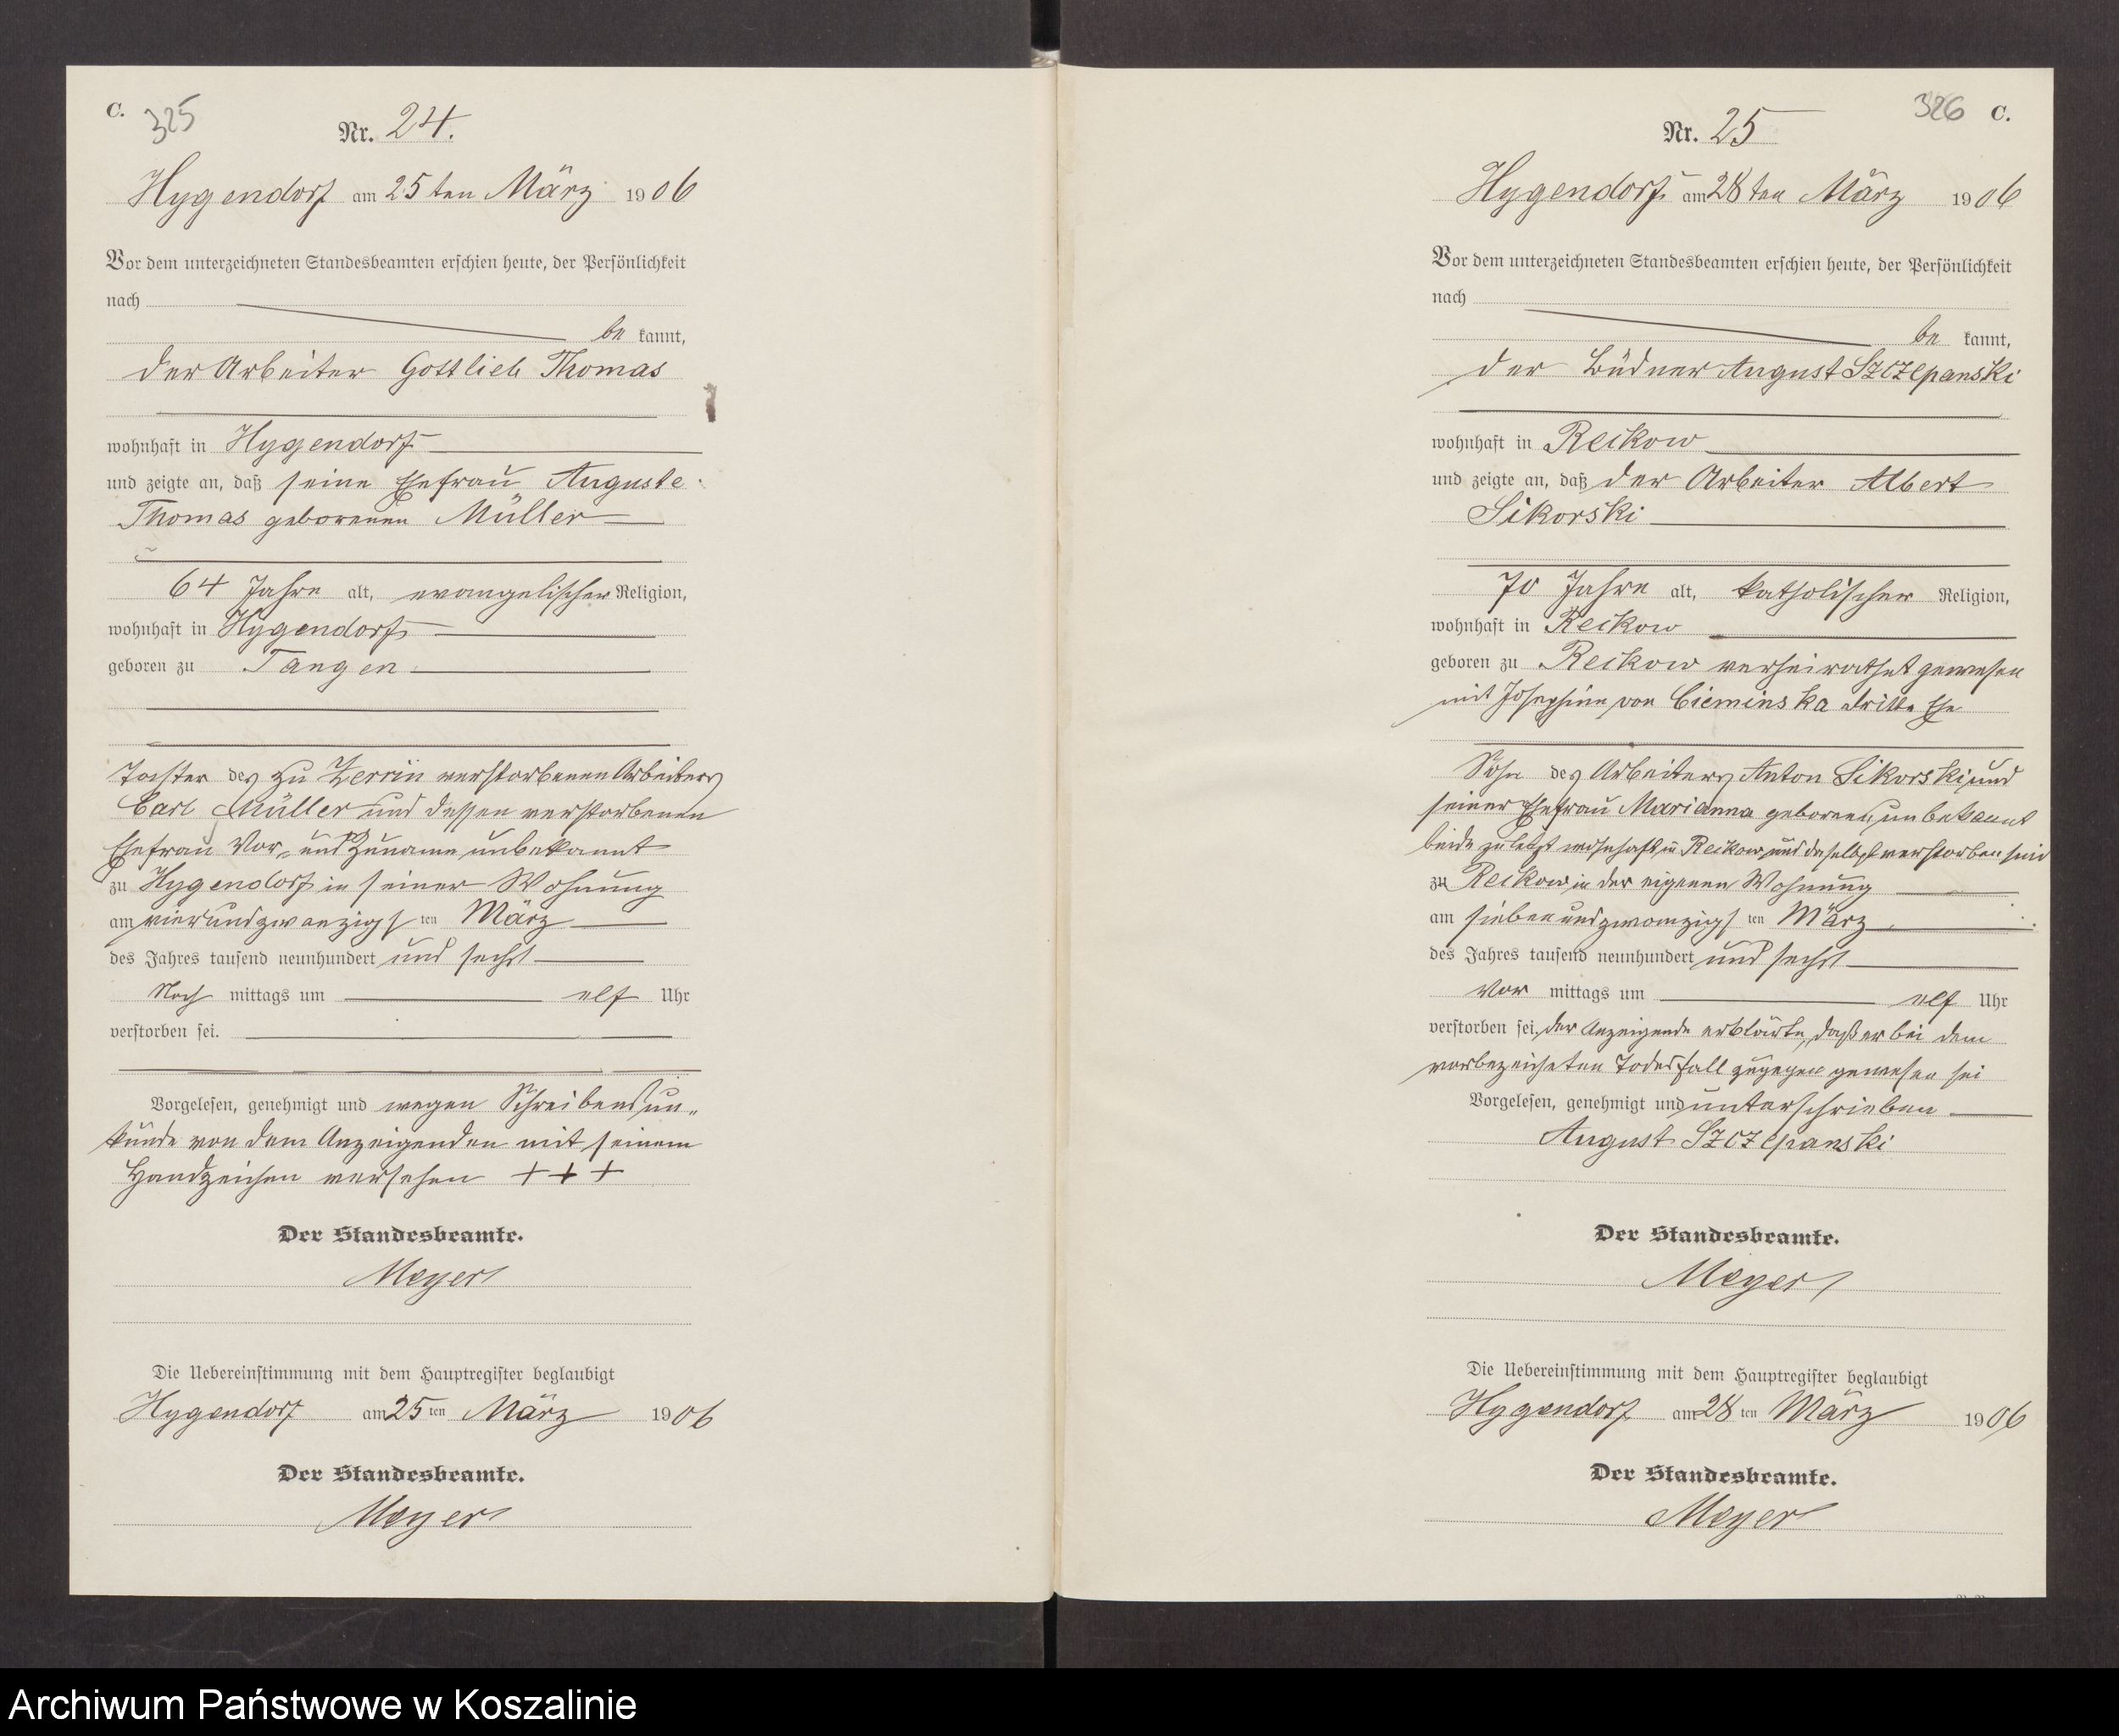 C.
325
Nr. 24.
Hygendorf am 25ten März 1906
Vor dem unterzeichneten Standesbeamten erschien heute, der Persönlichkeit
nach
be kannt,
der Arbeiter Gottlieb Thomas
wohnhaft in Hygendorf
und zeigte an, daß seine Ehefrau Auguste
Thomas geborenen Müller
64 Jahre alt, evangelischer Religion,
wohnhaft in Hygendorf
geboren zu Tangen
Tochter des zu Zerrin verstorbenen Arbeiters
Carl Müller und dessen verstorbenen
Ehefrau Vor- und Zuname unbekannt
zu Hygendorf in seiner Wohnung
am vierundzwanzigsten März
des Jahres tausend neunhundert und sechs
Nach mittags um elf Uhr
verstorben sei.
Vorgelesen, genehmigt und wegen Schreibensun-
kunde von dem Anzeigenden mit seinem
Handzeichen versehen +++
Der Standesbeamte.
Meyer
Die Uebereinstimmung mit dem Hauptregister beglaubigt
Hygendorf am 25ten März 1906
Der Standesbeamte.
Meyer
326 C.
Nr. 25
Hygendorf am 28ten März 1906
Vor dem unterzeichneten Standesbeamten erschien heute, der Persönlichkeit
nach
be kannt,
der Büdner August Szczepanski
wohnhaft in Reckow
und zeigte an, daß der Arbeiter Albert
Sikorski
70 Jahre alt, katholischer Religion,
wohnhaft in Reckow
geboren zu Reckow verheirathet gewesen
mit Josephine von Cieminska dritte Ehe
Sohn des Arbeiters Anton Sikorski und
seiner Ehefrau Marianna geborene unbekannt
beide zuletzt wohnhaft in Reckow und daselbst verstorben sind
zu Reckow in der eigenen Wohnung
am siebenundzwanzigsten März
des Jahres tausend neunhundert und sechs
Vor mittags um elf Uhr
verstorben sei, der Anzeigende erklärte, daß er bei dem
vorbezeichneten Todesfall zugegen gewesen sei
Vorgelesen, genehmigt und unterschrieben
August Szczepanski
Der Standesbeamte.
Meyer
Die Uebereinstimmung mit dem Hauptregister beglaubigt
Hygendorf am 28ten März 1906
Der Standesbeamte.
Meyer
Archiwum Państwowe w Koszalinie